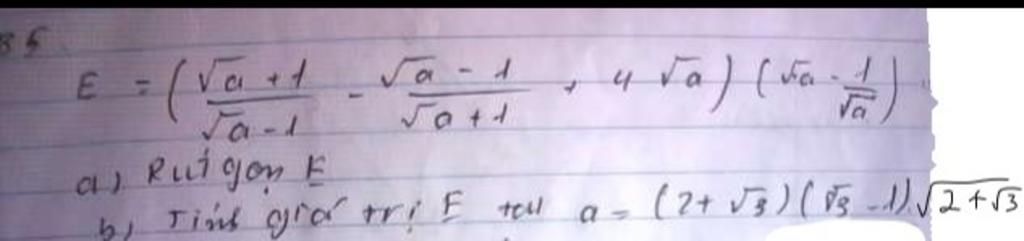 35
E = (\frac{\sqrt{a} + 1}{\sqrt{a} - 1} - \frac{\sqrt{a} - 1}{\sqrt{a} + 1} + 4\sqrt{a}) (\sqrt{a} - \frac{1}{\sqrt{a}})
a) Rút gọn E
b) Tính giá trị E tại a = (2 + \sqrt{3}) (\sqrt{3} - 1) . \sqrt{2 + \sqrt{3}}